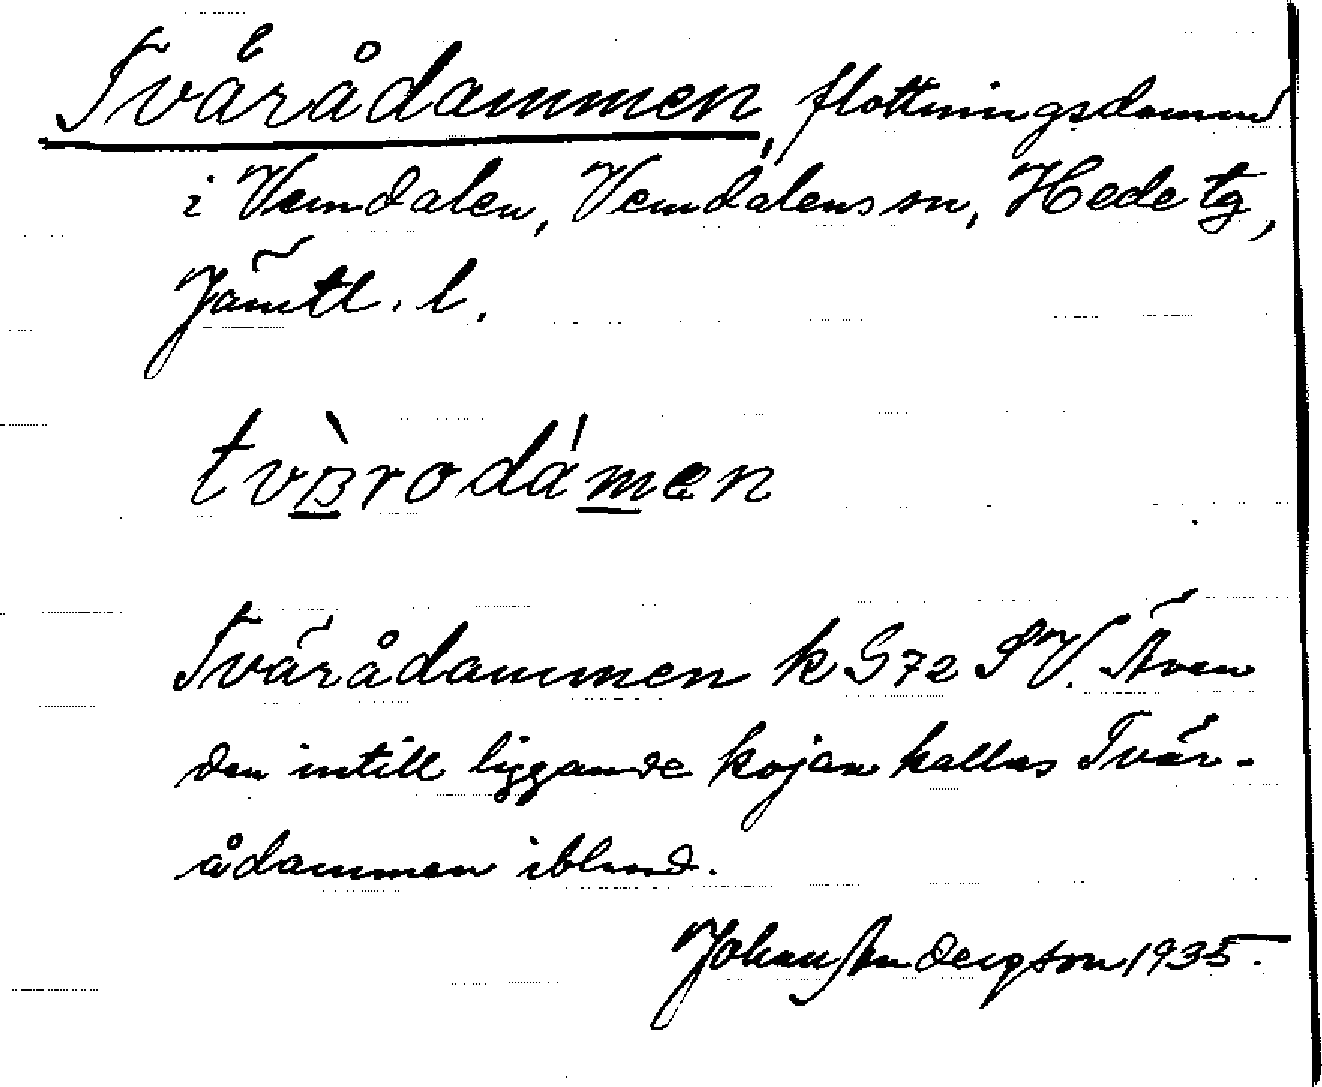 Tvärådammen, flottningsdamm
i Vemdalen, Vemdalens sn, Hede tg,
Jämtl. l.
Tvärådammen k G72 SV. Även
den intill liggande kojan kallas Tvär-
ådammen ibland.
Johan Andersson 1935.